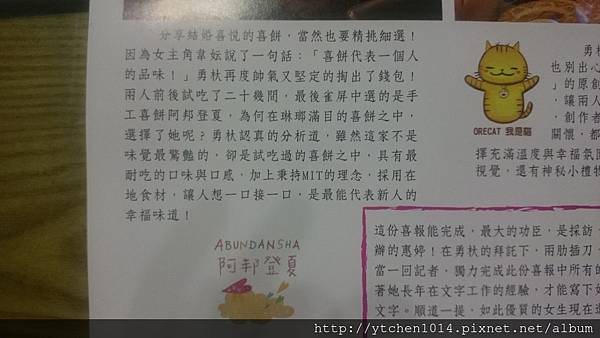 分享結婚喜悅的喜餅，當然也要精挑細選！
因為女主角韋妘說了一句話：「喜餅代表一個人
的品味！」勇杕再度帥氣又堅定的掏出了錢包！
兩人前後試吃了二十幾間，最後雀屏中選的是手
工喜餅阿邦登夏，為何在琳瑯滿目的喜餅之中，
選擇了她呢？勇杕認真的分析道，雖然這家不是
味覺最驚豔的，卻是試吃過的喜餅之中，具有最
耐吃的口味與口感，加上秉持MIT的理念，採用在
地食材，讓人想一口接一口，是最能代表新人的
幸福味道！
ABUNDANSHA
阿邦登夏
勇杕
也別出心
」的原創
，讓兩人
，創作者
關懷，都
ORECAT 我是貓
擇充滿溫度與幸福氛圍
視覺，還有神秘小禮物
這份喜報能完成，最大的功臣，是採訪、
辦的惠婷！在勇杕的拜託下，兩肋插刀，
當一回記者，獨力完成此份喜報中所有的
著她長年在文字工作的經驗，才能寫下如
文字。順道一提，如此優質的女生現在還
http://ytchen1014.pixnet.net/album